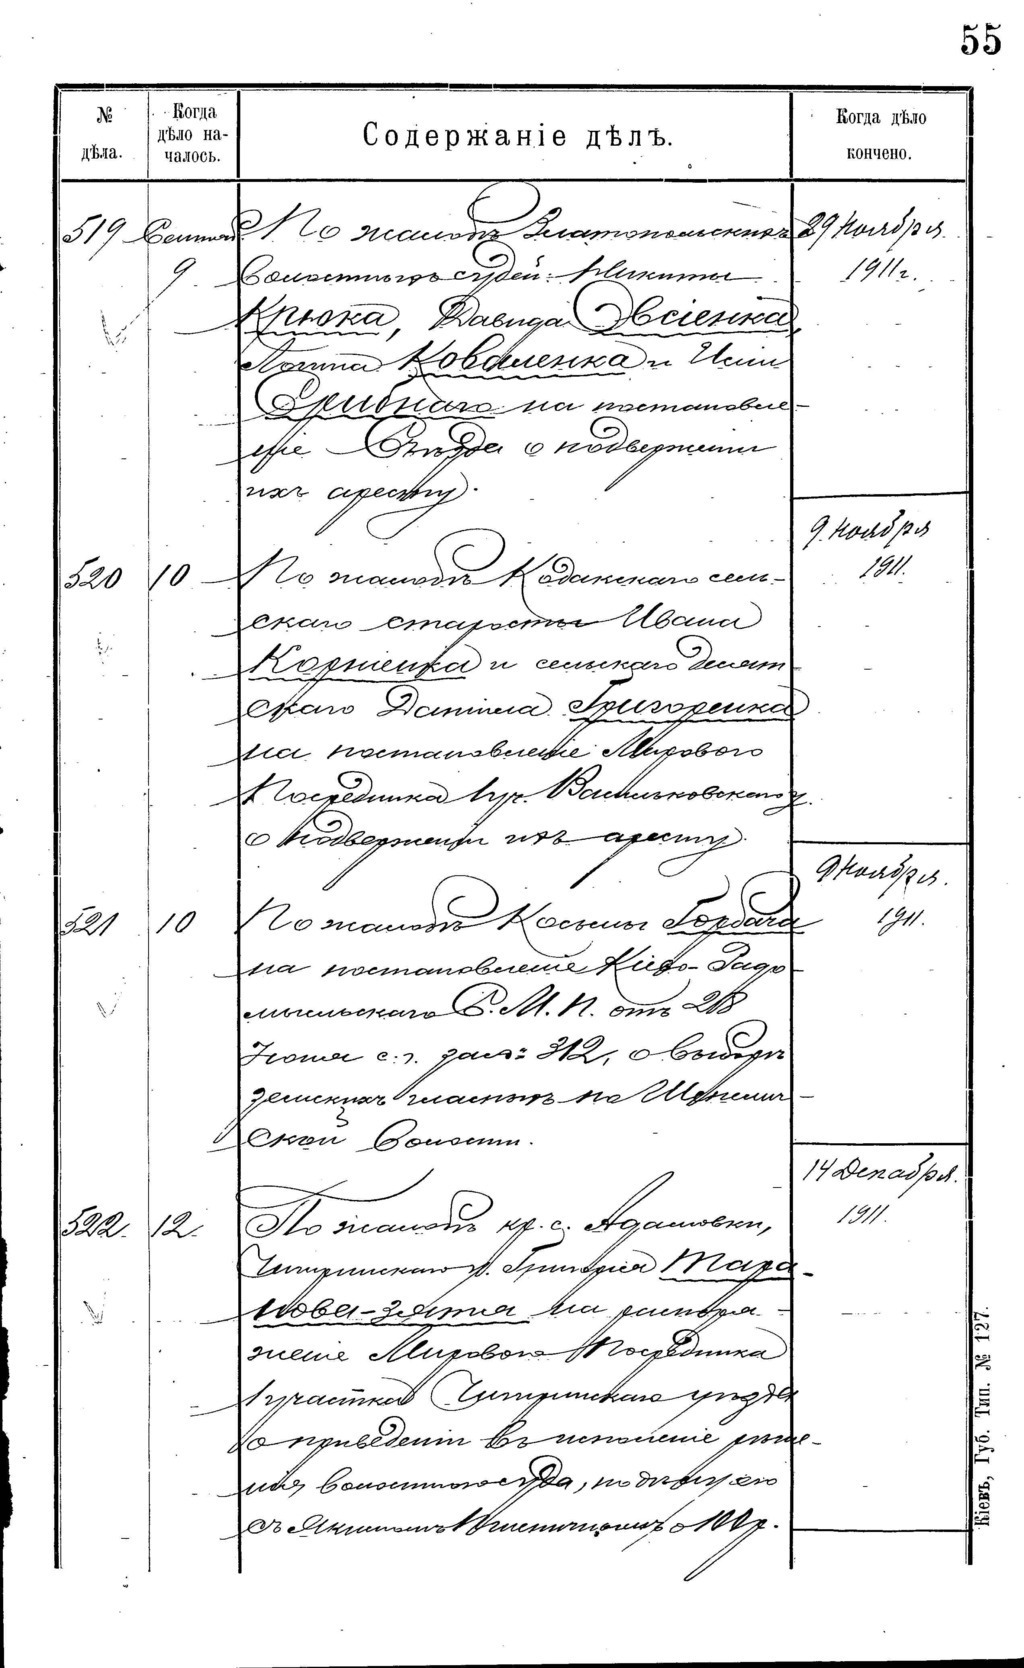 55
№ дѣла.
Когда дѣло на-
чалось.
Содержаніе дѣлъ.
Когда дѣло кончено.
519 По жалобѣ Златопольскихъ 29 Ноября
9 Волостныхъ судей: Никиты 1911 г.
Крюка, Давида Овсіенка,
Коваленка и
Грибнаго на постановле-
ніе Съѣзда о подверженіи
ихъ аресту.
9 Ноября
520 10 По жалобѣ Кодакскаго сель- 1911.
скаго старосты Ивана
Корніенка и сельскаго десят-
скаго Даніила Григоренка
на постановленіе Мирового
Посредника 1 уч. Васильковскаго у.
о подверженіи ихъ аресту.
9 Ноября.
521 10 По жалобѣ Космы Гордача 1911.
на постановленіе Кіево-Радо
мысльскаго С. М. П. отъ 28
Іюня с. г. за №: 312, о выборѣ
земскихъ гласныхъ по
ской волости.
14 Декабря.
522. 12. По жалобѣ кр. с. Адамовки, 1911.
Чигиринскаго у. Григорія Мара-
нова-Зятя на распоря-
женіе Мирового Посредника
1 участка Чигиринскаго уѣзда
о приведеніи въ исполненіе рѣше-
нія Волостного суда, по дѣлу его
съ Акимомъ Пшеничнымъ о 100 р.
Кіевъ, Губ. Тип. № 127.